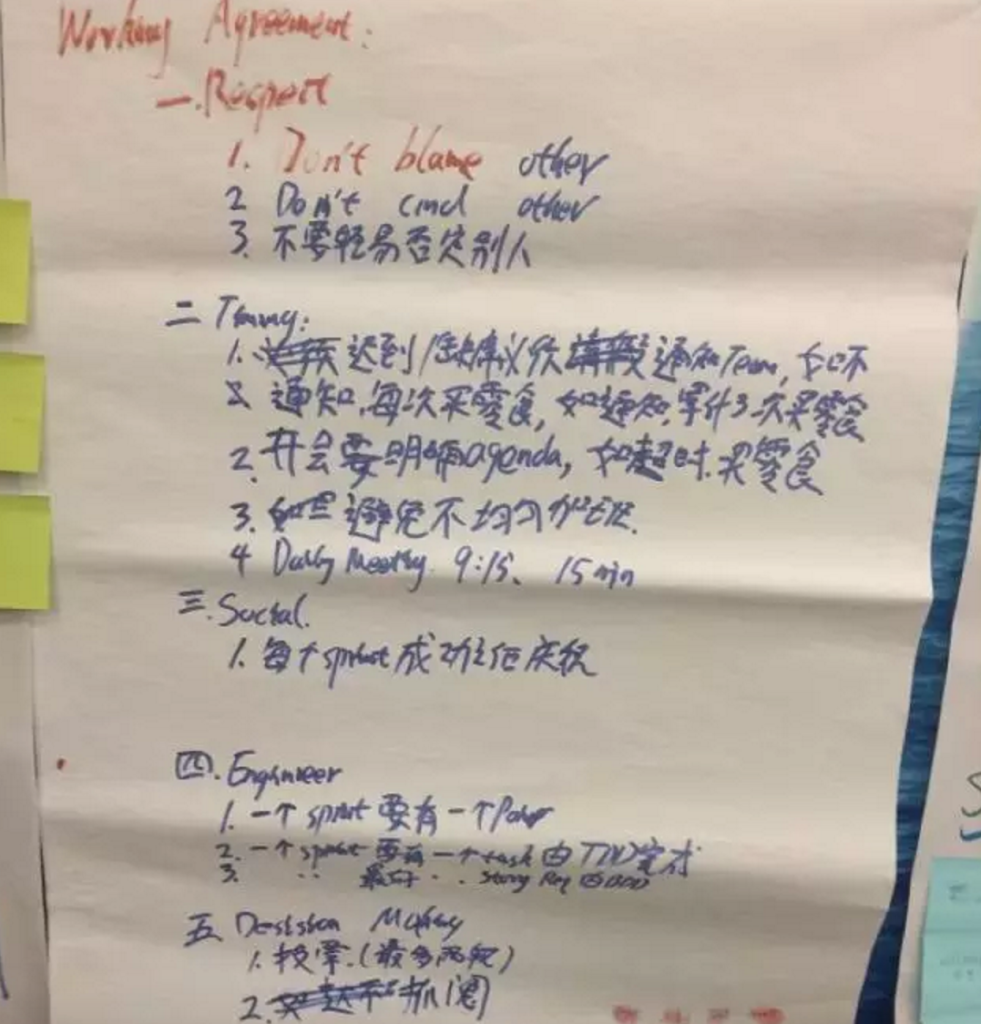 Working Agreement:
一. Respect
1. Don't blame other
2 Don't cmd other
3. 不要轻易否定别人
二 Timing:
1. 迟到/缺席会议须 通知Team, 如不
通知,每次买零食,如通知,累计3次买零食
2. 开会要明确agenda, 如超时.买零食
3. 避免不均匀加班.
4 Daily Meeting. 9:15、 15min
三. Social.
1. 每个sprint成功后庆祝
四. Engineer
1. 一个 sprint 要有一个
2. 一个 sprint 要有一个task由TDD完成
3. 最好 Story 由BDD
五 Desision Making
1. 投票.(最多两轮)
2. 抓阄